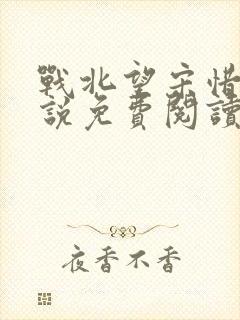 戰北望宋惜
說免費閱讀
夜香不香